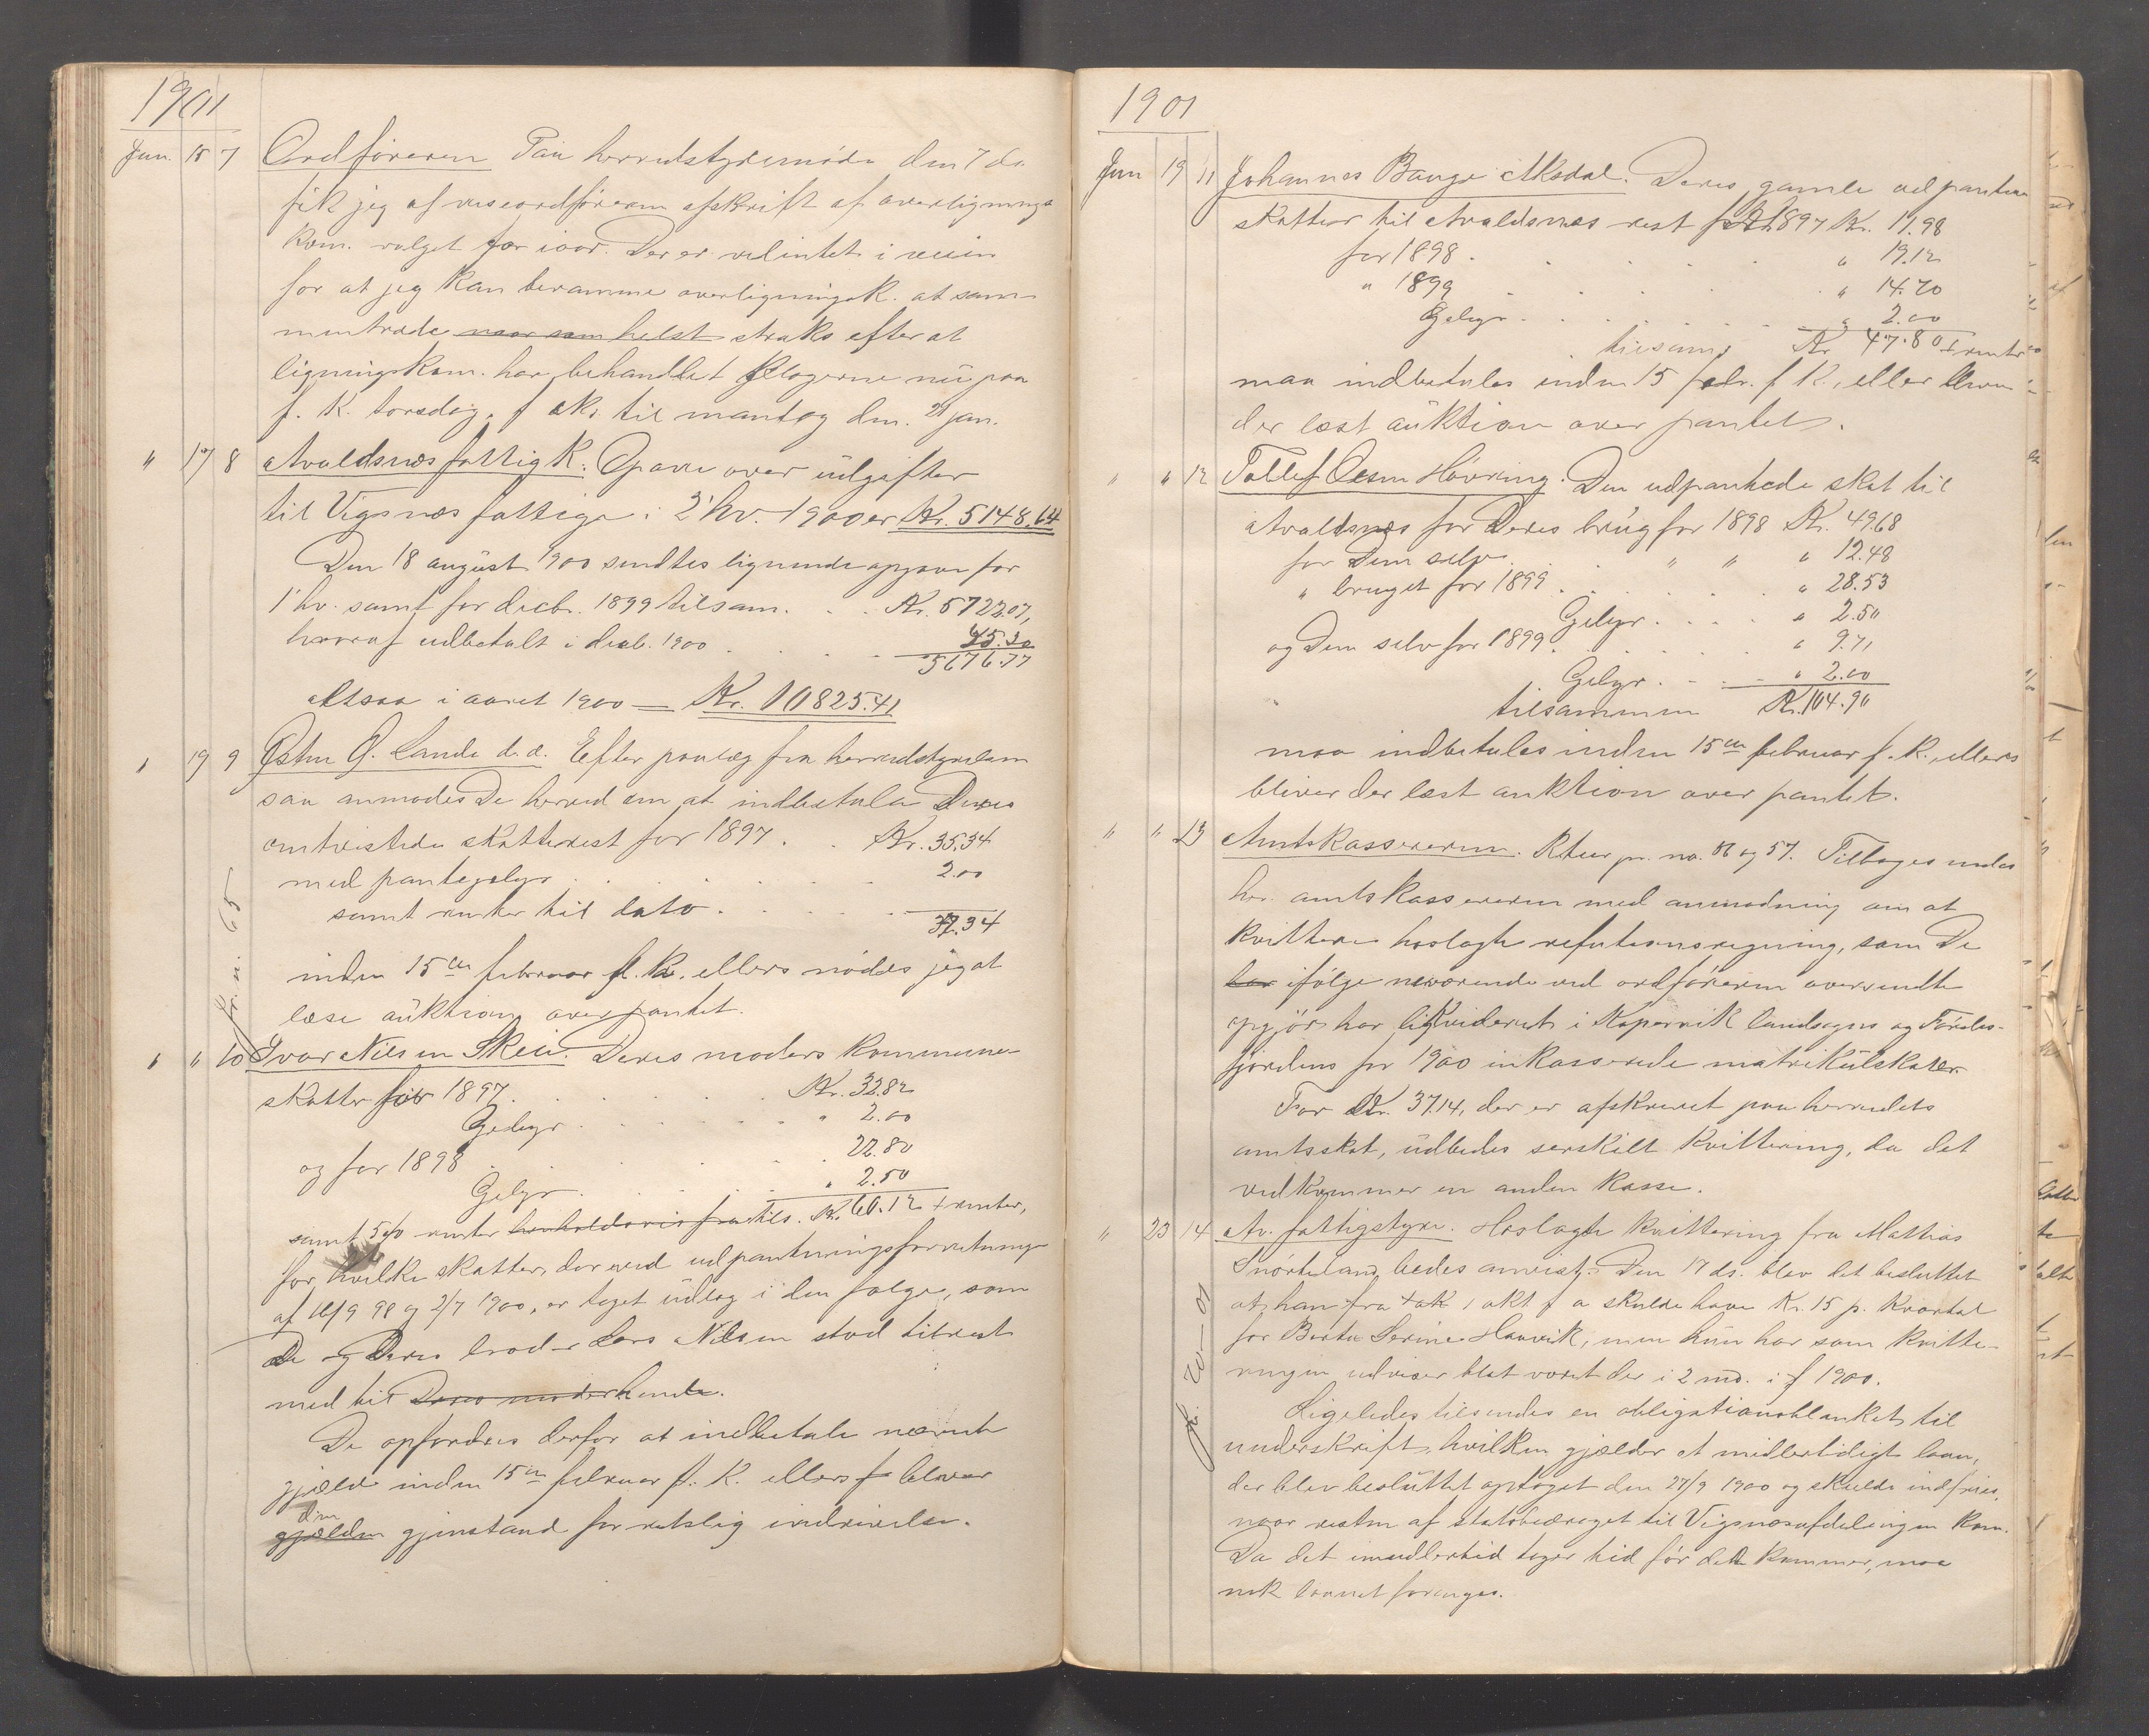 1901
Jan. 15 7 Ordføreren Paa herredstyremøde den 7 ds
fik jeg af viseordføreren afskrift af overlignings
kom. valget for iaar. Der er vel intet i veien
for at jeg kan beramme overligningsk. at sam-
mentræde naar som helst straks efter at
ligningskom. har behandlet klagerne nu paa
f. k. torsdag, f eks. til mandag den 21 jan.
" 17 8 Avaldsnæs fattigk. Opgave over udgifter
til Vigsnæs fattige i 2' hv. 1900 er Kr. 5148.64
Den 18 august 1900 sendtes lignende opgave for
1' hv. samt for decbr. 1899 tilsam. . . Kr. 5722.07,
hvoraf udbetalt i decb. 1900 . . . 45.30
5676.77
altsaa i aaret 1900 — Kr. 10825.41
" 19 9 Østen O. Lande d.æ. Efter paalæg fra herredstyrelsen
saa anmodes De herved om at indbetale Deres
omtvistede skatterest for 1897 . . Kr. 35.34
med pantegebyr . . . 2.00
samt renter til dato . . . 37.34
inden 15de februar f. k. ellers nødes jeg at
læse auktion over pantet.
Jr. n. 65
" " 10 Ivar Nilsen Skeie. Deres moders kommune-
skatter for 1897 . . . Kr. 32.82
Gebyr . . . " 2.00
og for 1898 . . . 22.80
Gebyr . . . " 2.50
samt 5% renter henholdsvis fra tils. Kr. 60.12 + renter,
for hvilke skatter, der ved udpantningsforretninger
af 16/9 98 og 2/7 1900, er taget udlæg i den følge, som
De og Deres broder Lars Nilsen stod tilrest
med til Deres moder hende.
De opfordres derfor at indbetale nævnte
gjæld inden 15de februar f. k. ellers f bliver
den
gjælden gjenstand for retslig inddrivelse.
1901
Jan 19 11 Johannes Bauge Aksdal. Deres gamle udpantede
skatter til Avaldsnæs rest fra 1897 Kr. 11.98
for 1898 . . . " 19.12
" 1899 . . . " 14.70
Gebyr . . . " 2.00
tilsam. Kr 47.80 + renter
maa indbetales inden 15 febr. f k., ellers bliver
der læst auktion over pantet.
" " 12 Tollef Olsen Høvring. Den udpantede skat til
Avaldsnæs for Deres brug for 1898 Kr. 49.68
for Dem selv . " " " 12.48
" bruget for 1899 . . . " 28.53
Gebyr . . . " 2.50
og Dem selv for 1899 . . . " 9.71
Gebyr . . . " 2.00
tilsammen Kr. 104.90
maa indbetales inden 15de februar f. k., ellers
bliver der læst auktion over pantet.
" " 13 Amtskassereren. Rteur pr. no. 86 og 57. Tilbagesendes
hr. amtskassereren med anmodning om at
kvittere hoslagte refutionsregning, som De
har ifølge nærværende ved ordføreren oversendte
opgjør har likvideret i Kopervik landsogns og Førdes-
fjordens for 1900 inkasserede matrikulskatter.
For Kr. 37.14, der er afskrevet paa herredets
amtsskat, udbedes særskilt kvittering, da det
vedkommer en anden kasse.
" 23 14 Av. fattigstyre. Hoslagte kvittering fra Mathias
Snørteland bedes anvist. Den 17 ds. blev det besluttet
at han fra 1 okt f a skulde have Kr. 15 p. kvartal
for Berte Serine Hauvik, men hun har som kvitte-
ringen udviser blot været der i 2 md. i f 1900.
Ligeledes tilsendes en obligationsblanket til
underskrift, hvilken gjælder et midlertidigt laan,
der blev besluttet optaget den 27/9 1900 og skulde indfries,
naar resten af statsbidraget til Vigsnæsafdelingen kom.
Da det imidlertid tager tid før det kommer, maa
nok laanet fornyes.